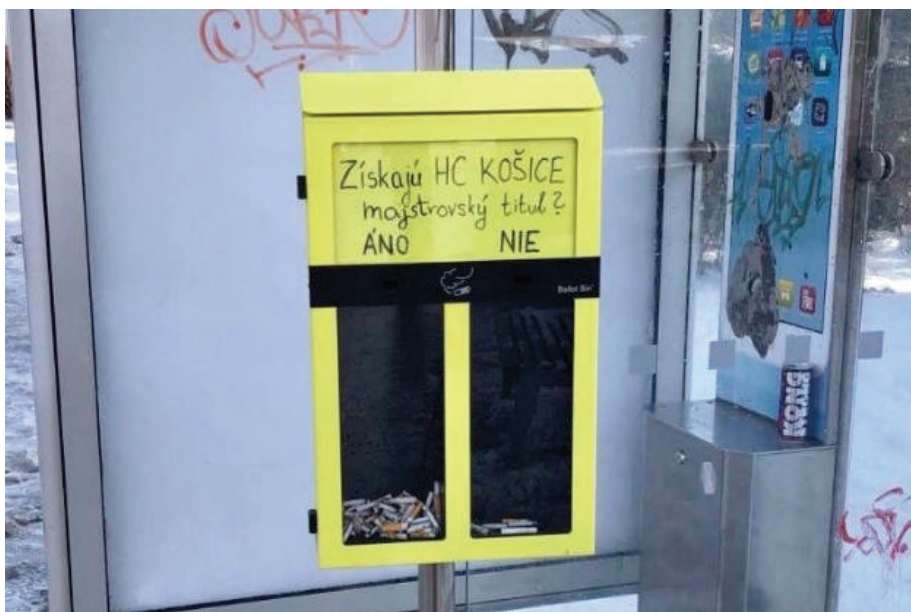 Získajú HC KOŠICE
majstrovský titul?
ÁNO NIE
Ballot Bin
KONB